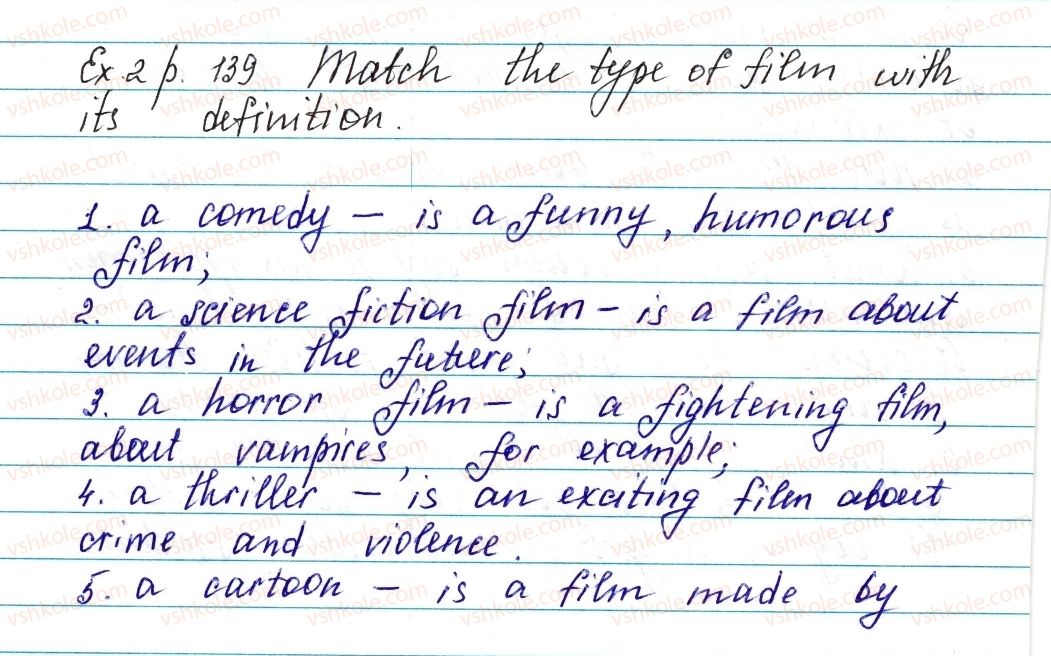 Ex. 2 p. 139 Match the type of film with
its definition.
1. a comedy — is a funny, humorous
film;
2. a science fiction film – is a film about
events in the future;
3. a horror film – is a fightening film,
about vampires, for example;
4. a thriller – is an exciting film about
crime and violence.
5. a cartoon – is a film made by